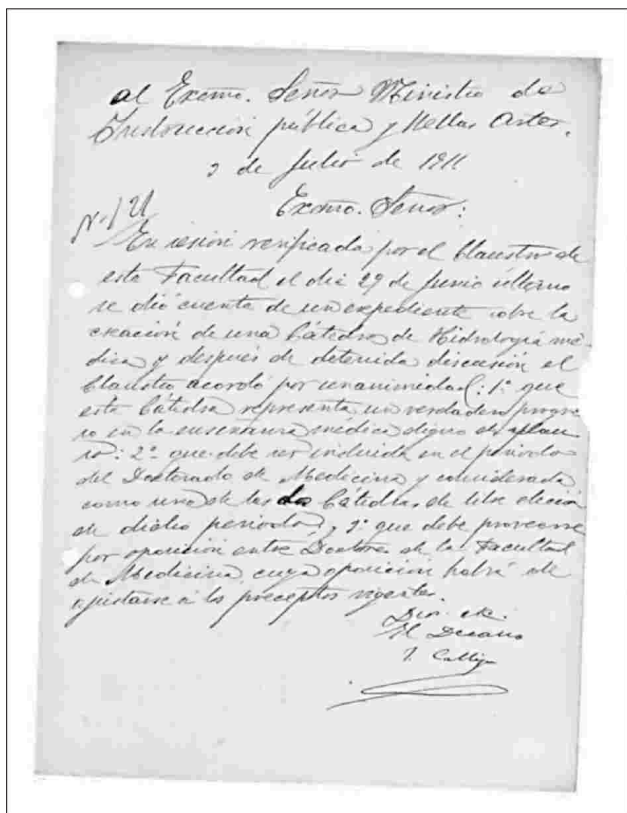 al Excmo. Señor Ministro de
Instrucción pública y Bellas Artes.
3 de Julio de 1911
Excmo. Señor:
Nº 121
En sesión verificada por el Claustro de
esta Facultad el dia 29 de Junio último
se dió cuenta de un expediente sobre la
creación de una Cátedra de Hidrología mé-
dica y después de detenida discusión el
Claustro acordó por unanimidad: 1º que
esta Cátedra representa un verdadero progre-
so en la enseñanza médica digno de aplau-
so: 2º que debe ser incluida en el periodo
del Doctorado de Medicina y considerada
como una de las dos Cátedras de libre elección
de dicho periodo, y 3º que debe proveerse
por oposición entre Doctores de la Facultad
de Medicina cuya oposición habrá de
ajustarse a los preceptos vigentes.
Dios etc.
El Decano
J. Calleja